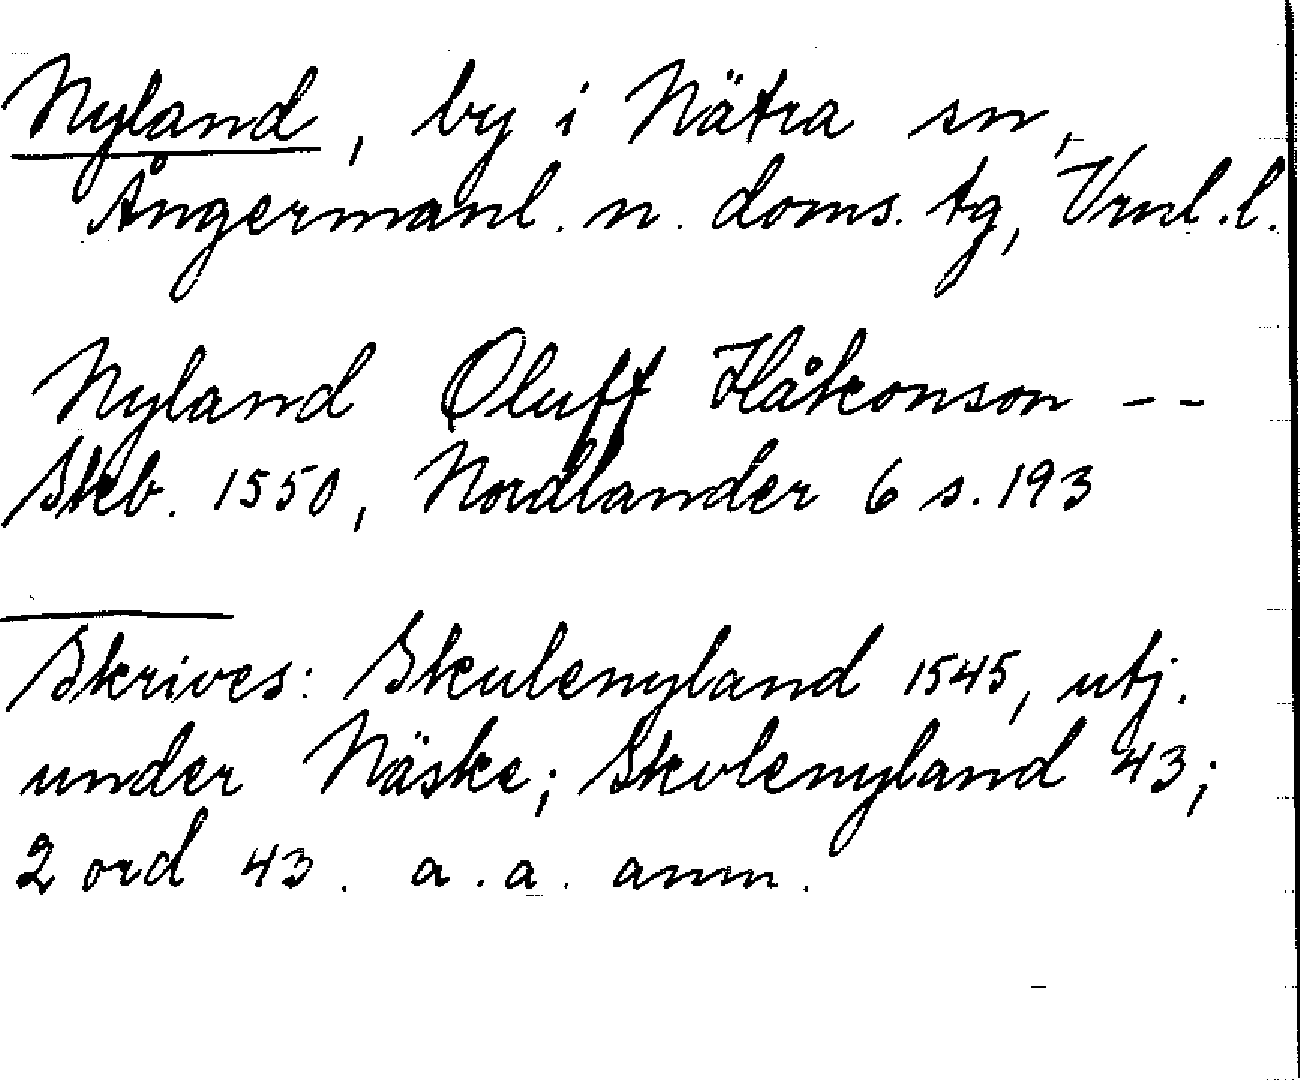 Nyland, by i Nätra sn,
Ångermanl. n. doms. tg, Vrnl. l.
Nyland Oluff Håkonson --
Skb. 1550, Nordlander 6 s. 193
Skrives: Skulenyland 1545, utj.
under Näske; Skvlenyland 43;
2 ord 43. a. a. anm.